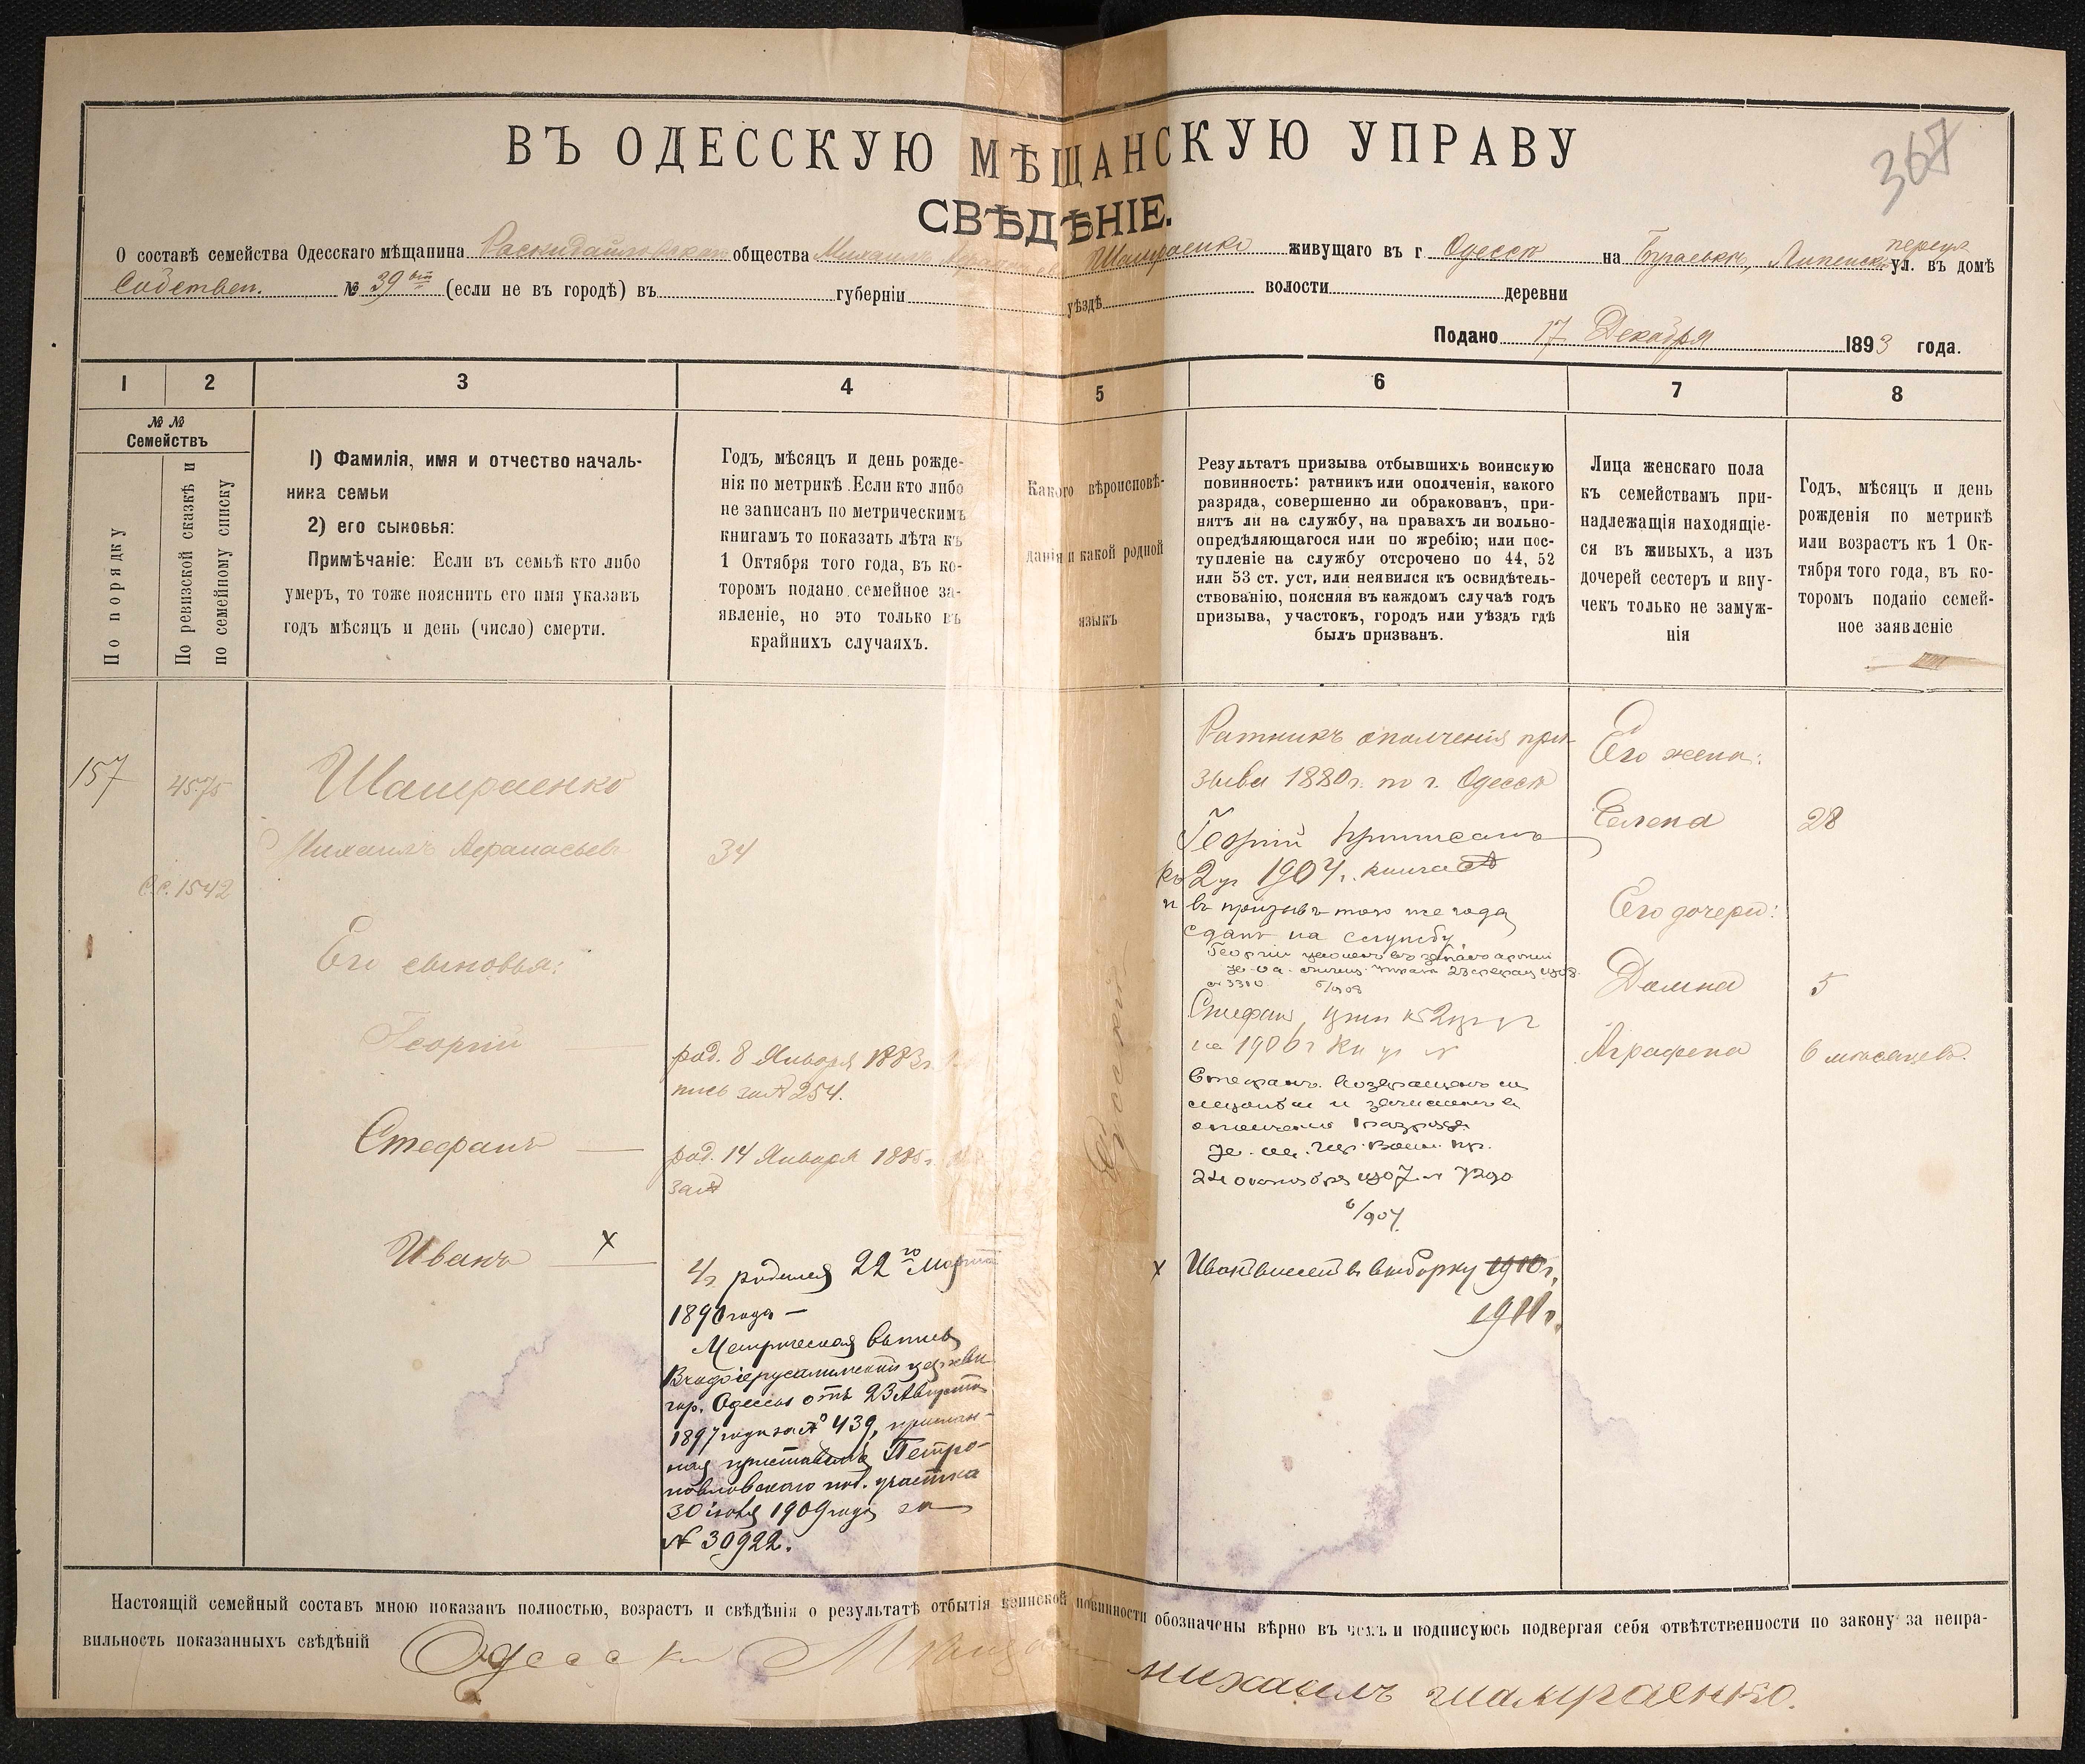 367
ВЪ ОДЕССКУЮ МѢЩАНСКУЮ УПРАВУ
СВѢДѢНІЕ.
О составѣ семейства Одесскаго мѣщанина Раскидайловскаго общества Михаилъ Афанасьевъ живущаго въ г Одессѣ на ул. въ домѣ
переул
Собствен. № 39 (если не въ городѣ) въ губерніи уѣздѣ волости деревни
Подано 17 Декабря 1893 года.
1 2 3 4 5 6 7 8
№ №
Семействъ
По порядку
По ревизской сказкѣ и
по семейному списку
1) Фамилія, имя и отчество началь-
ника семьи
2) его сыновья:
Примѣчаніе: Если въ семьѣ кто либо
умеръ, то тоже пояснить его имя указавъ
годъ мѣсяцъ и день (число) смерти.
Годъ, мѣсяцъ и день рожде-
нія по метрикѣ. Если кто либо
не записанъ по метрическимъ
книгамъ то показать лѣта къ
1 Октября того года, въ ко-
торомъ подано семейное за-
явленіе, но это только въ
крайнихъ случаяхъ.
Какого вѣроисповѣ-
данія и какой родной
языкъ
Результатъ призыва отбывшихъ воинскую
повинность: ратникъ или ополченія, какого
разряда, совершенно ли обракованъ, при-
нятъ ли на службу, на правахъ ли вольно-
опредѣляющагося или по жребію; или пос-
тупленіе на службу отсрочено по 44, 52
или 53 ст. уст, или неявился къ освидѣтель-
ствованію, поясняя въ каждомъ случаѣ годъ
призыва, участокъ, городъ или уѣздъ гдѣ
былъ призванъ.
Лица женскаго пола
къ семействамъ при-
надлежащія находящіе-
ся въ живыхъ, а изъ
дочерей сестеръ и вну-
чекъ только не замуж-
нія
Годъ, мѣсяцъ и день
рожденія по метрикѣ
или возрастъ къ 1 Ок-
тября того года, въ ко-
торомъ подано семей-
ное заявленіе
157
4575
С.С. 1542
Михаилъ Афанасьевъ
34
Его сыновья:
Георгій
род. 8 Января 1883г.
пись за № 254.
Стефанъ
род. 14 Января 1885г.
за №
Иванъ x
родился 22го Марта
1890 года —
Метрическая выпись
церкви
гор. Одессы отъ 23 Августа
1897 года за № 439,
приставомъ Петро-
павловскаго пол. участка
30 іюня 1909 года за
№ 30922.
Русскій
Ратникъ ополченія при-
зыва 1880г. по г. Одессѣ
Георгій приписанъ
къ 2 уч 1904г. книга
и въ призывъ того же года
сданъ на службу
Георгій уволенъ въ запасъ арміи
№ 3310
Стефанъ
на 1906г
Стефанъ возвращенъ
и зачисленъ въ
ополченіе 1 разряда
24 октября 1907 г № 7290
x Иванъ внесенъ въ выборку 1910г.
1911г.
Его жена:
Елена 28
Его дочери:
Домна 5
Аграфена 6 мѣсяцевъ.
Настоящій семейный составъ мною показанъ полностью, возрастъ и свѣдѣнія о результатѣ отбытія воинской повинности обозначены вѣрно въ чемъ и подписуюсь подвергая себя отвѣтственности по закону за непра-
вильность показанныхъ свѣдѣній
Михаилъ